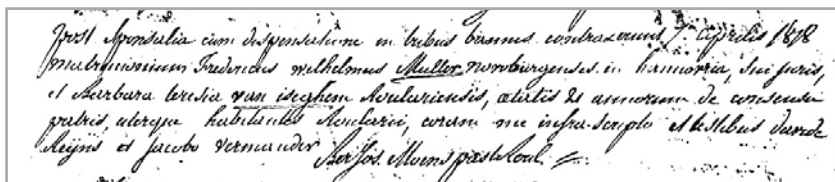 post sponsalia cum dispensatione in tribus bannis contraxerunt 7a aprilis 1818
matrimonium Fredericus wilhelmus Muller norburgensis in hanovria, sui juris,
et Barbara teresia van iseghem Roulariensis, aetatis 21 annorum de consensu
patris, uterque habitantes Roularii, coram me infra-scripto et testibus davide
Reijns et jacobo vermander Ber Jos. Moens past. Roul.